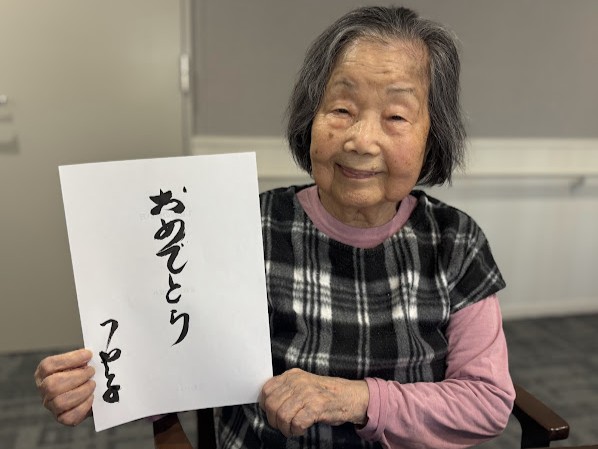 おめでとう
つやの